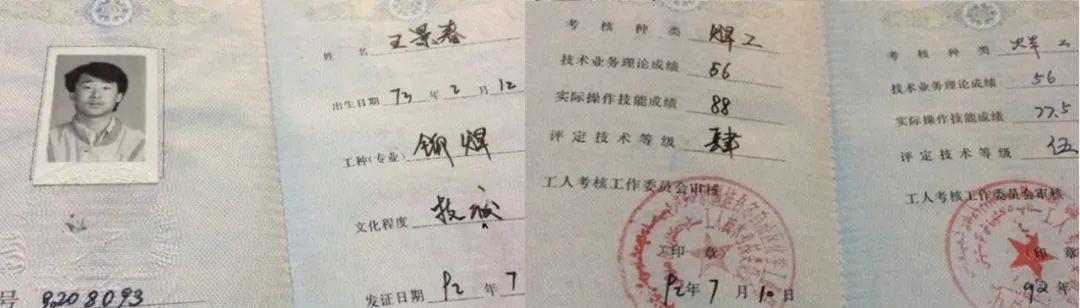 号 9208093
姓名 王景春
出生日期 73 年 2 月 12
工种(专业) 铆焊
文化程度 技
发证日期 92 年 7
考核种类 焊工
技术业务理论成绩 56
实际操作技能成绩 88
评定技术等级 肆
工人考核工作委员会审核
(印章)
92 年 7 月 10 日
考核种类 焊工
技术业务理论成绩 56
实际操作技能成绩 77.5
评定技术等级 伍
工人考核工作委员会审核
(印章
92 年